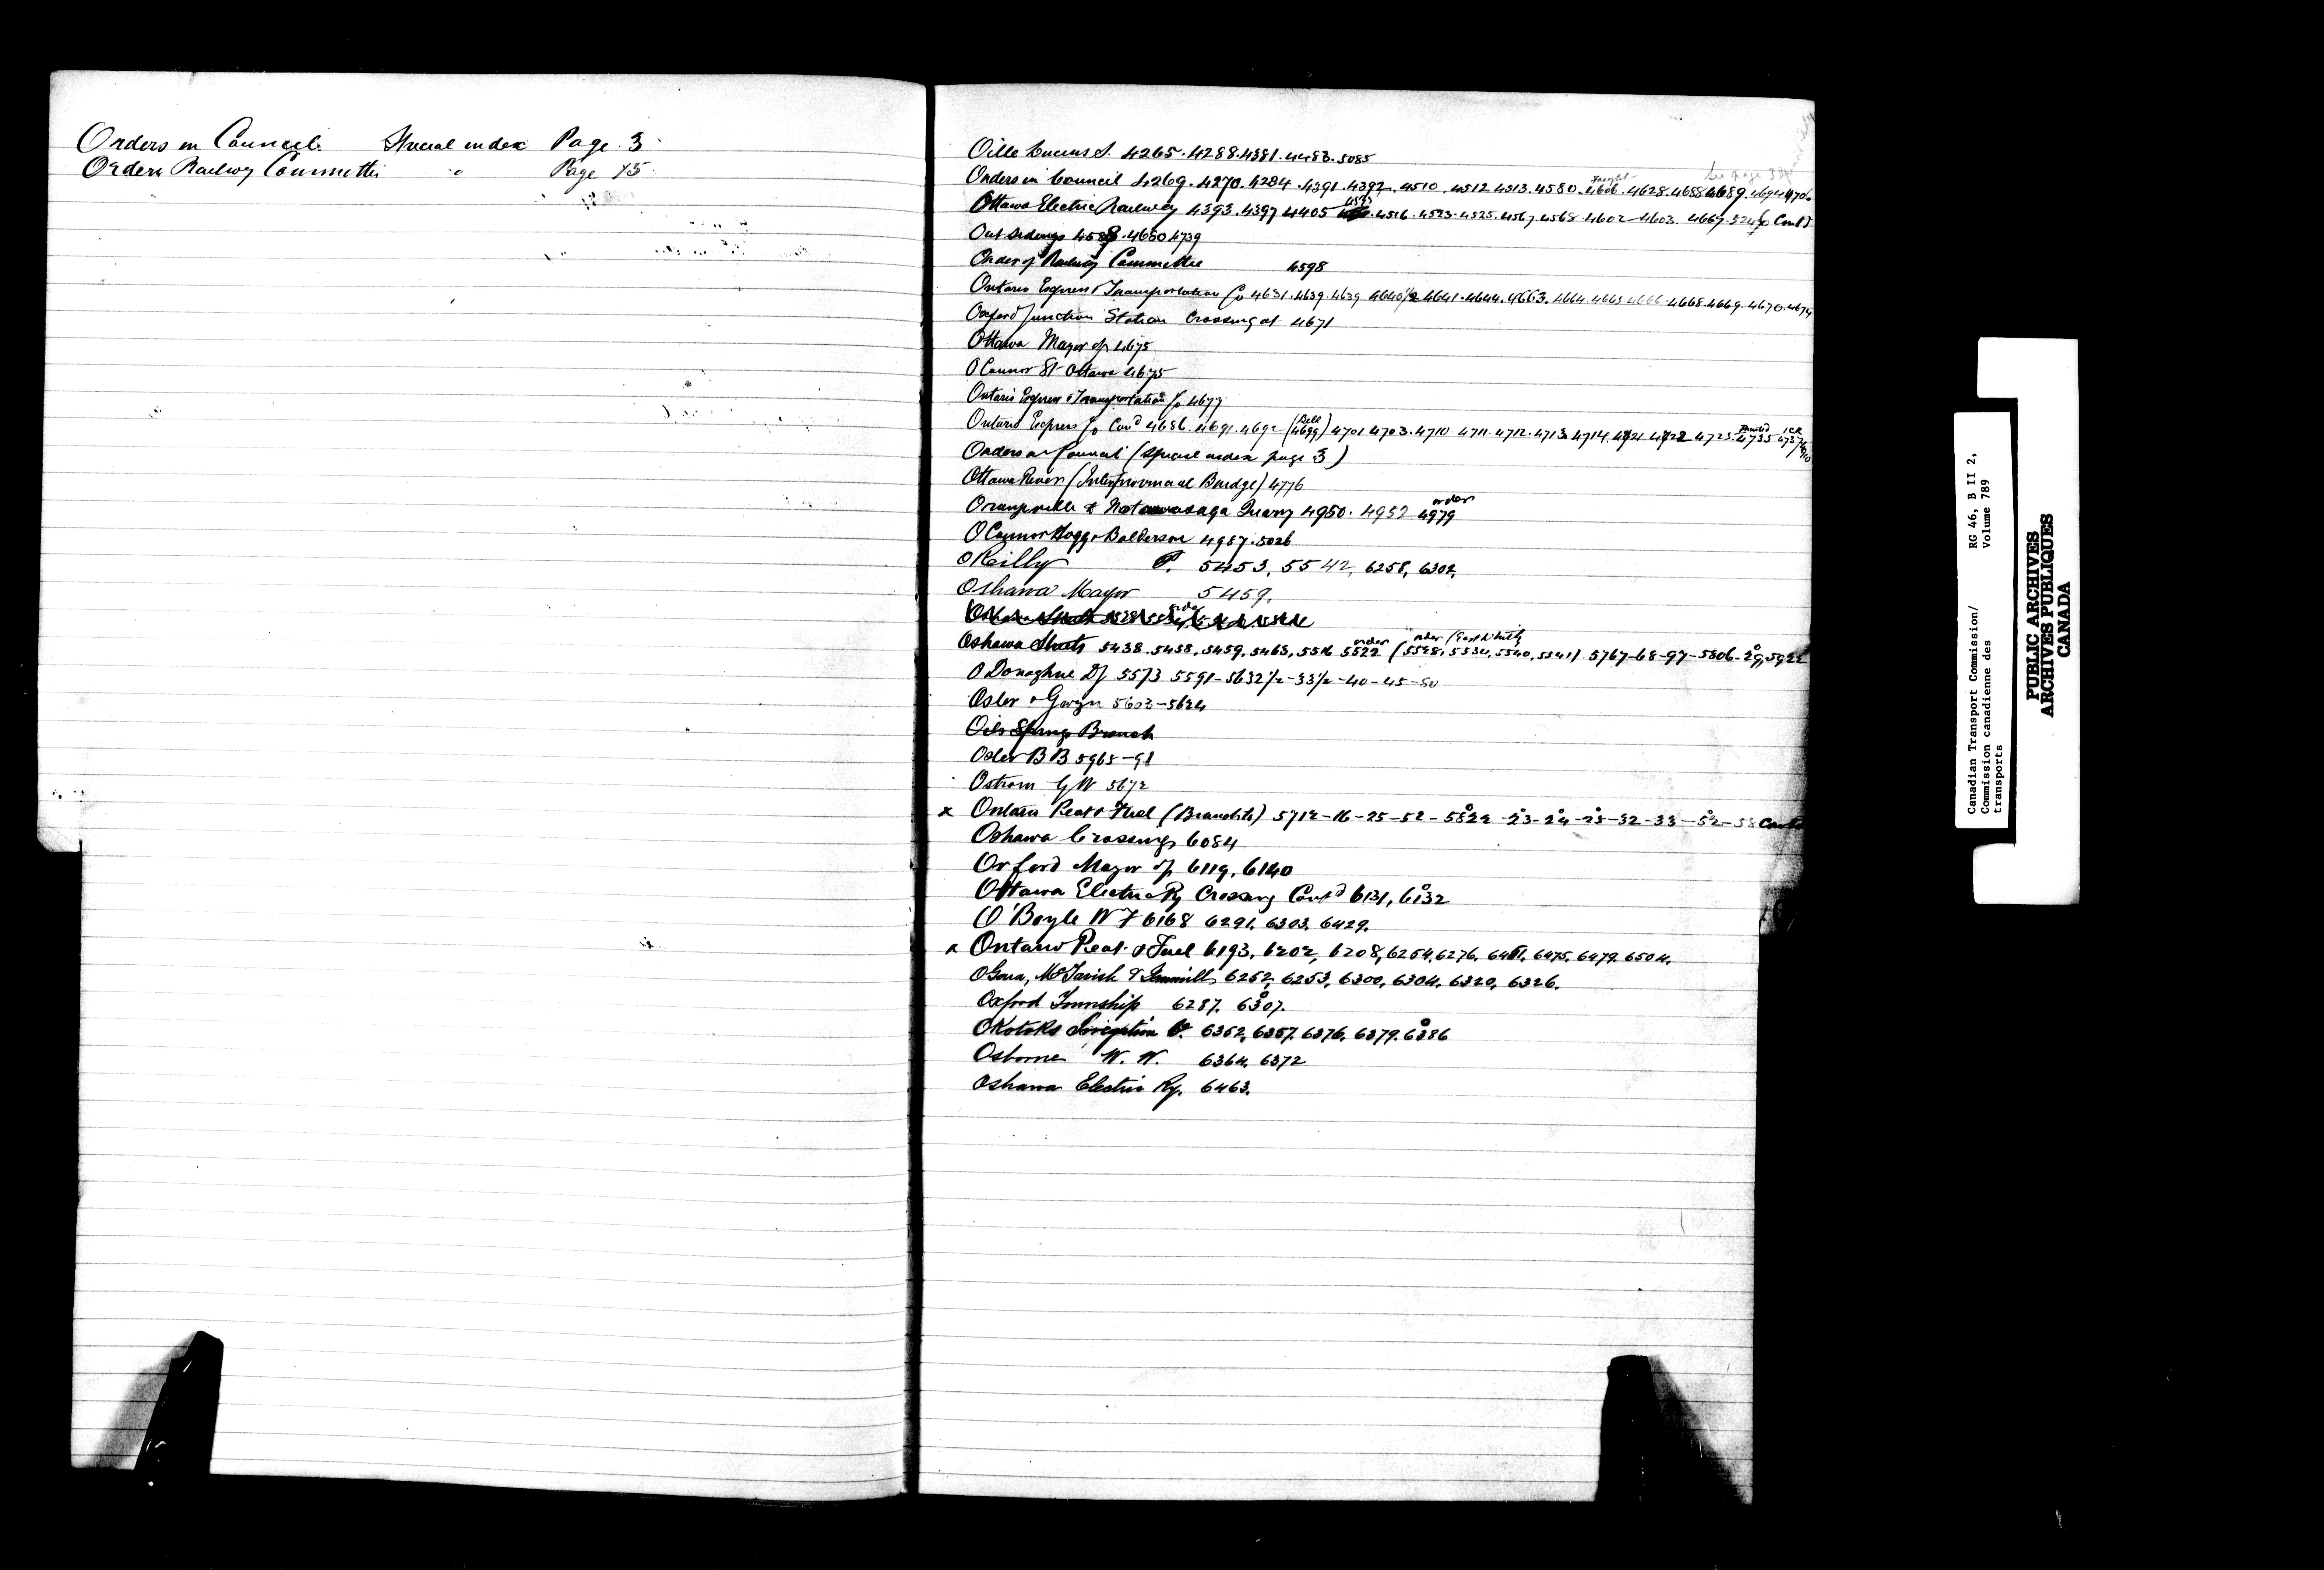 Orders in Council Special index Page 3
Orders Railway Committee " Page 15
See page 3
Oille Lucius S. 4265.4288.4381.4483.5085
Orders in Council 4269.4270.4284.4391.4392.4510.4512 4513.4580.4606.4628.4688 4689.4694 4706
Ottawa Electric Railway 4393.4397 4405 4516.4523.4525.4567.4568.4602-4603.4667. Cont'd
Outsidings 4650 4739
Order of Railway Committee 4598
Ontario Express & Transportation Co 4631.4639.4639 4640½ 4641.4644.4663.4664.4665 4666.4668.4669.4670.4674
Oxford Junction Station Crossing at 4671
Ottawa Mayor of 4675
O'Connor St Ottawa 4675
Ontario Express & Transportation Co 4677
Ontario Express Co Con'd 4686.4691.4692 (Bell 4699) 4701 4703.4710 4711.4712.4713.4714.4721 4722 4723.4735 4737
Orders in Council (Special index page 3)
Ottawa River (Interprovincial Bridge) 4776
Orangeville & Nottawasaga Quarry 4950. 4952 order 4979
O'Connor Hogg & Balderson 4987.5026
O'Reilly P. 5453, 5542, 6258, 6302,
Oshawa Mayor 5459.
Oshawa Streets 5438.5458, 5459, 5463, 5516 order 5522 (order (East Whitby 5528, 5534, 5540, 5541) 5767-68-97-5806-29, 5922
O'Donoghue DJ 5573 5591-5632½-33½-40-45-50
Osler & Gwyn 5603-5624
Oil Springs Branch
Osler B B 5965-91
Ostrom G W 5672
x Ontario Peat & Fuel (Brandite) 5712-16-25-52-5822-23-24-25-32-33-52-58 Contd
Oshawa Crossings 6084
Orford Mayor of 6119, 6140
Ottawa Electric Ry Crossing Cont'd 6131, 6132
O'Boyle W F 6168 6291, 6303, 6429,
x Ontario Peat & Fuel 6193, 6202, 6208, 6254, 6276, 6475, 6479, 6504.
O'Gara, McTavish & Gemmill, 6252, 6253, 6300, 6304, 6320, 6326.
Oxford Township 6287, 6307.
Okotoks Irrigation Co. 6352, 6357, 6376, 6379, 6386
Osborne W. W. 6364, 6372
Oshawa Electric Ry. 6463.
Canadian Transport Commission/
Commission canadienne des
transports
RG 46, B II 2,
Volume 789
PUBLIC ARCHIVES
ARCHIVES PUBLIQUES
CANADA